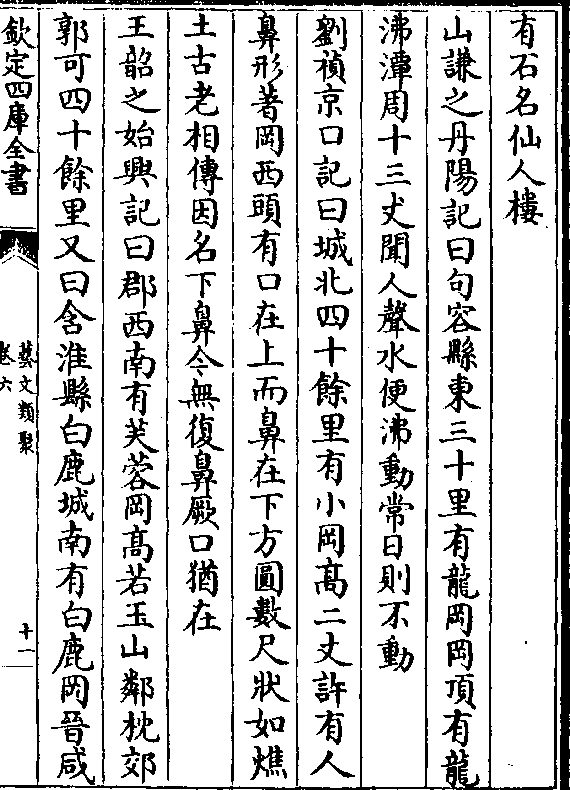 有石名仙人樓
山謙之丹陽記曰句容縣東三十里有龍岡岡頂有龍
沸潭周十三丈聞人聲水便沸動常日則不動
劉禎京口記曰城北四十餘里有小岡髙二丈許有人
鼻形著岡西頭有口在上而鼻在下方圓數尺狀如燋
土古老相傳因名下鼻今無復鼻厥口猶在
王韶之始興記曰郡西南有芙蓉岡髙若玉山鄰枕郊
郭可四十餘里又曰含淮縣白鹿城南有白鹿岡晉咸
欽定四庫全書
藝文類聚
卷六
十一